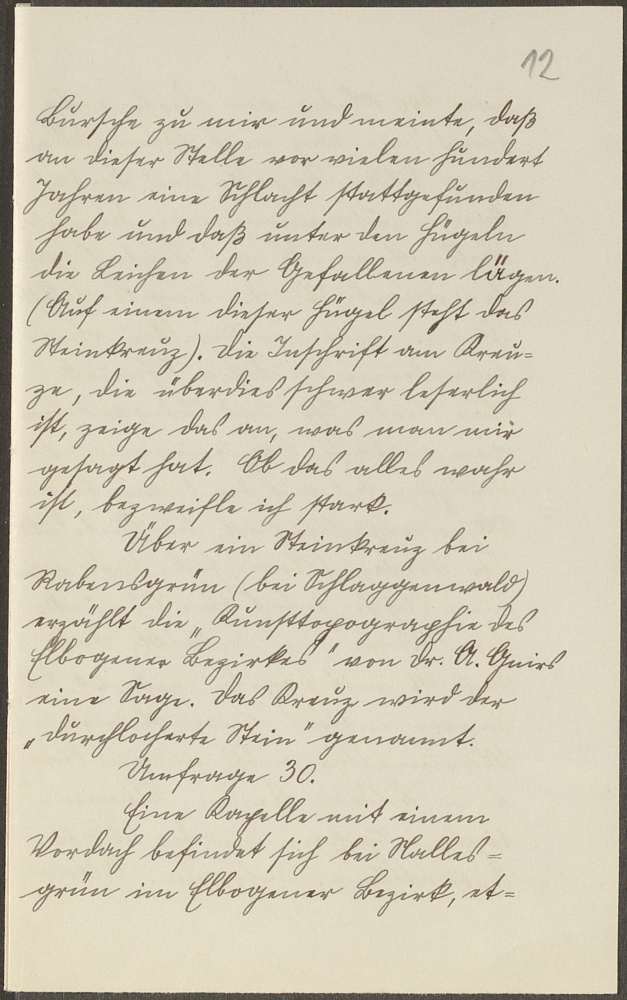 12
Bursche zu mir und meinte, daß
an dieser Stelle vor vielen hundert
Jahren eine Schlacht stattgefunden
habe und daß unter den Hügeln
die Leichen der Gefallenen lägen.
(Auf einem dieser Hügel steht das
Steinkreuz). Die Inschrift am Kreu=
ze, die überdies schwer leserlich
ist, zeige das an, was man mir
gesagt hat. Ob das alles wahr
ist, bezweifle ich stark.
Über ein Steinkreuz bei
Rabensgrün (bei Schlaggenwald)
erzählt die „Kunsttopographie des
Elbogener Bezirkes" von Dr. A. Gnirs
eine Sage. Das Kreuz wird der
„durchlocherte Stein" genannt.
Umfrage 30.
Eine Kapelle mit einem
Vordach befindet sich bei Nalles=
grün im Elbogener Bezirk, et=